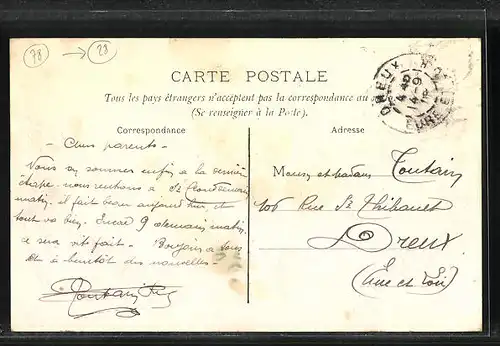 78 → 28
CARTE POSTALE
Tous les pays étrangers n'acceptent pas la correspondance au
(Se renseigner à la Poste).
Correspondance
Adresse
DREUX
EURE-E
- Chers parents -
Nous y sommes enfin à la dernière
étape, nous rentrons à St Cloud demain
matin, il fait beau aujourd'hui, et
tout va bien. Encore 9 demain matin,
ce sera vit fait - à tous
à bientôt des nouvelles -
Toutain
Monsr et madame Toutain
106 Rue St Thibault
Dreux
(Eure et Loir)